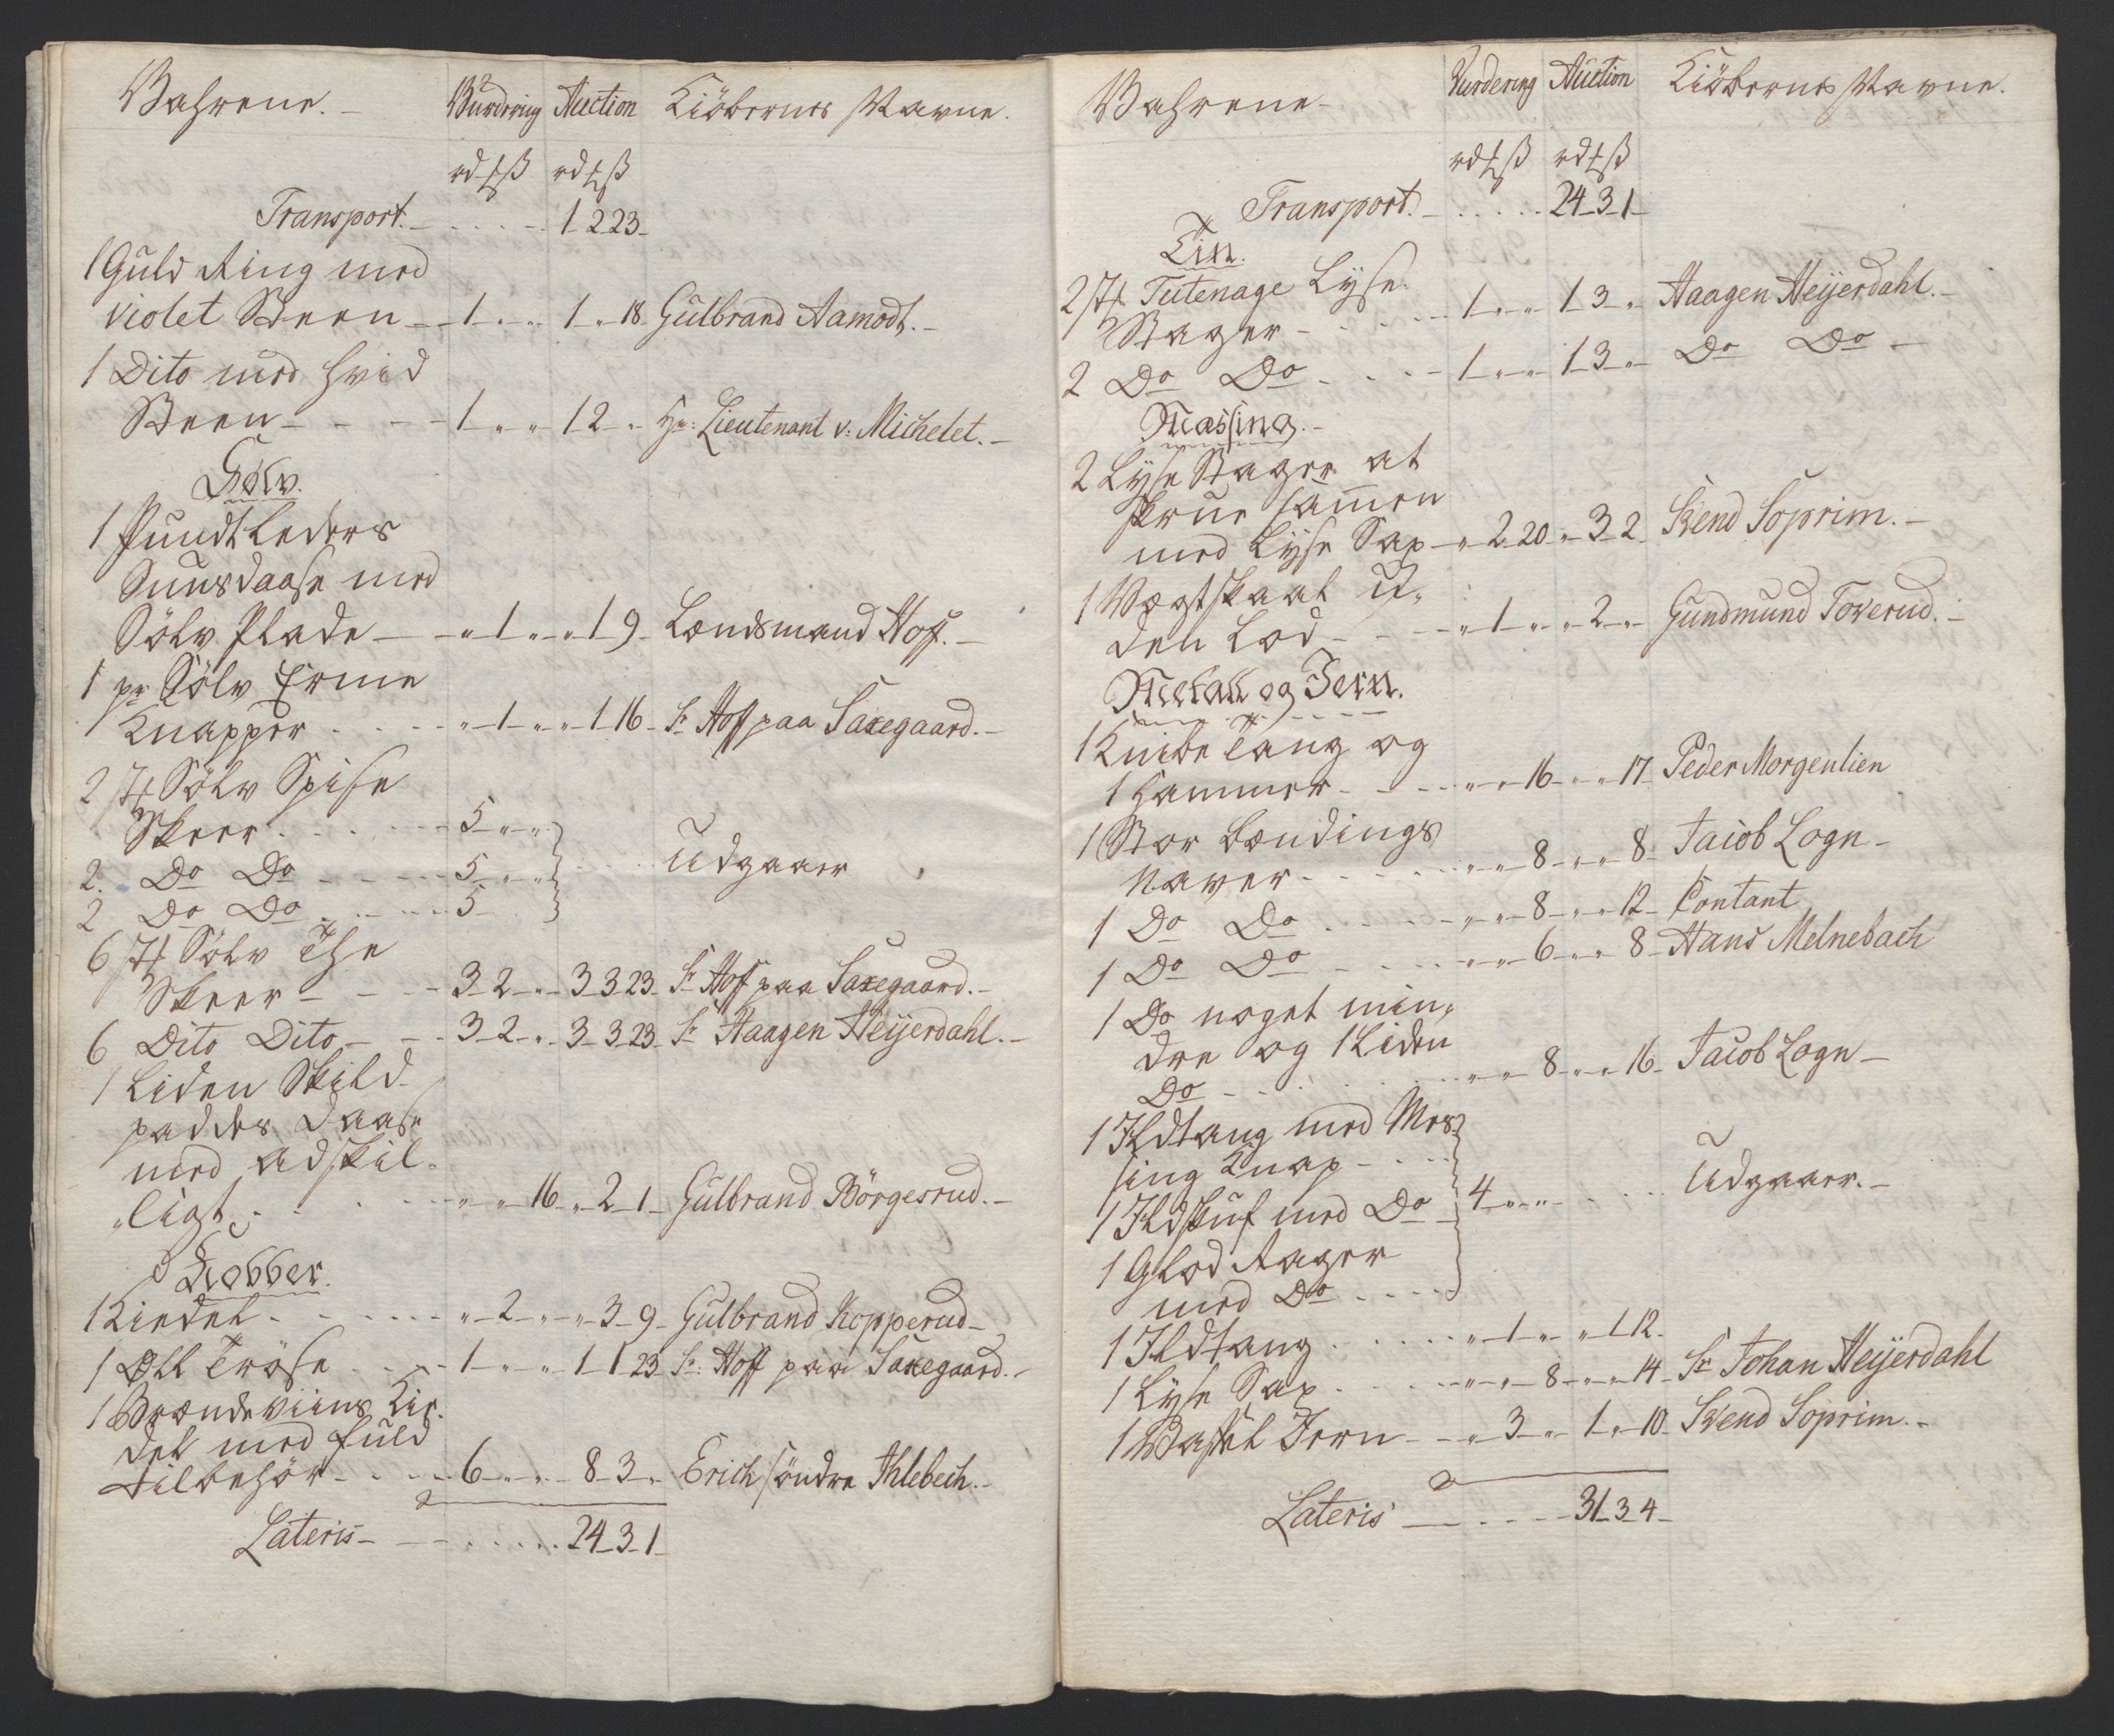 Vahrene. Vurdering Auction Kiöbernes Navne.
rd ß rd ß
Transport. 1 2 23
1 Guld Ring med
violet Steen 1 " " 1 " 18 Gulbrand Aamodt.
1 Dito med hvid
Steen 1 " " 1 2 " Hr: Lieutenant v: Michelet.
Sölv.
1 Pundtleders
Snusdaase med
Sölv Plade " 1 " " 1 9 Lændsmand Hoff.
1 pr Sölv Erme
Knapper " 1 " " 1 16 Sr Hoff paa Saxegaard.
2 st Sölv Spise
Skeer 5 " "
2. Do Do 5 " " Udgaaer
2 Do Do 5
6 st Sölv The
Skeer 3 2 " 3 3 23 Sr Hoff paa Saxegaard.
6 Dito Dito 3 2 " 3 3 23 Sr Haagen Heÿerdahl.
1 Liden Skild
paddes Daase
med adskil-
ligt " " 16 " 2 1 Gulbrand Börgesrud.
Kobber.
1 Kiedel " 2 " " 3 9 Gulbrand Kopperud
1 Øll Tröse 1 " " 1 1 23 Sr. Hoff paa Saxegaard.
1 Brændeviins Kie-
del med fuld
tilbehör 6 " " 8 3 " Erich söndre Ihlebech.
Lateris 24 3 1
Vahrene Vurdering Auction Kiöbernes Navne.
rd ß rd ß
Transport. 24 3 1
Tin.
2 st Tutenage Lyse-
Stager 1 " " 1 3 " Haagen Heÿerdahl.
2 Do Do 1 " " 1 3 " Do Do
Messing.
2 Lyse Stager at
skrue samen
med Lyse Sax " 2 20 " 3 2 Svend Soprim.
1 Vægtskaal u-
den Lod " 1 " " 2 " Gundmund Toverud.
Metall og Jern.
1 Knibe Tang og
1 Hammer " " 16 " " 17 Peder Morgenlien
1 Stor Bændings
Naver " " 8 " " 8 Jacob Logn
1 Do Do " " 8 " " 12 Contant
1 Do Do " " 6 " " 8 Hans Melnebach
1 Do noget min-
dre og 1 Liden
Do " " 8 " " 16 Jacob Logn
1 Ildtang med Mes-
sing Knap
1 Ildskuf med Do 4 " " Udgaaer.
1 Glod Rager
med Do
1 Ildtang " 1 " " 1 12
1 Lyse Sax " " 8 " " 14 Sr Johan Heÿerdahl
1 Waffel Jern " 3 " 1 " 10 Svend Soprim.
Lateris 31 3 4